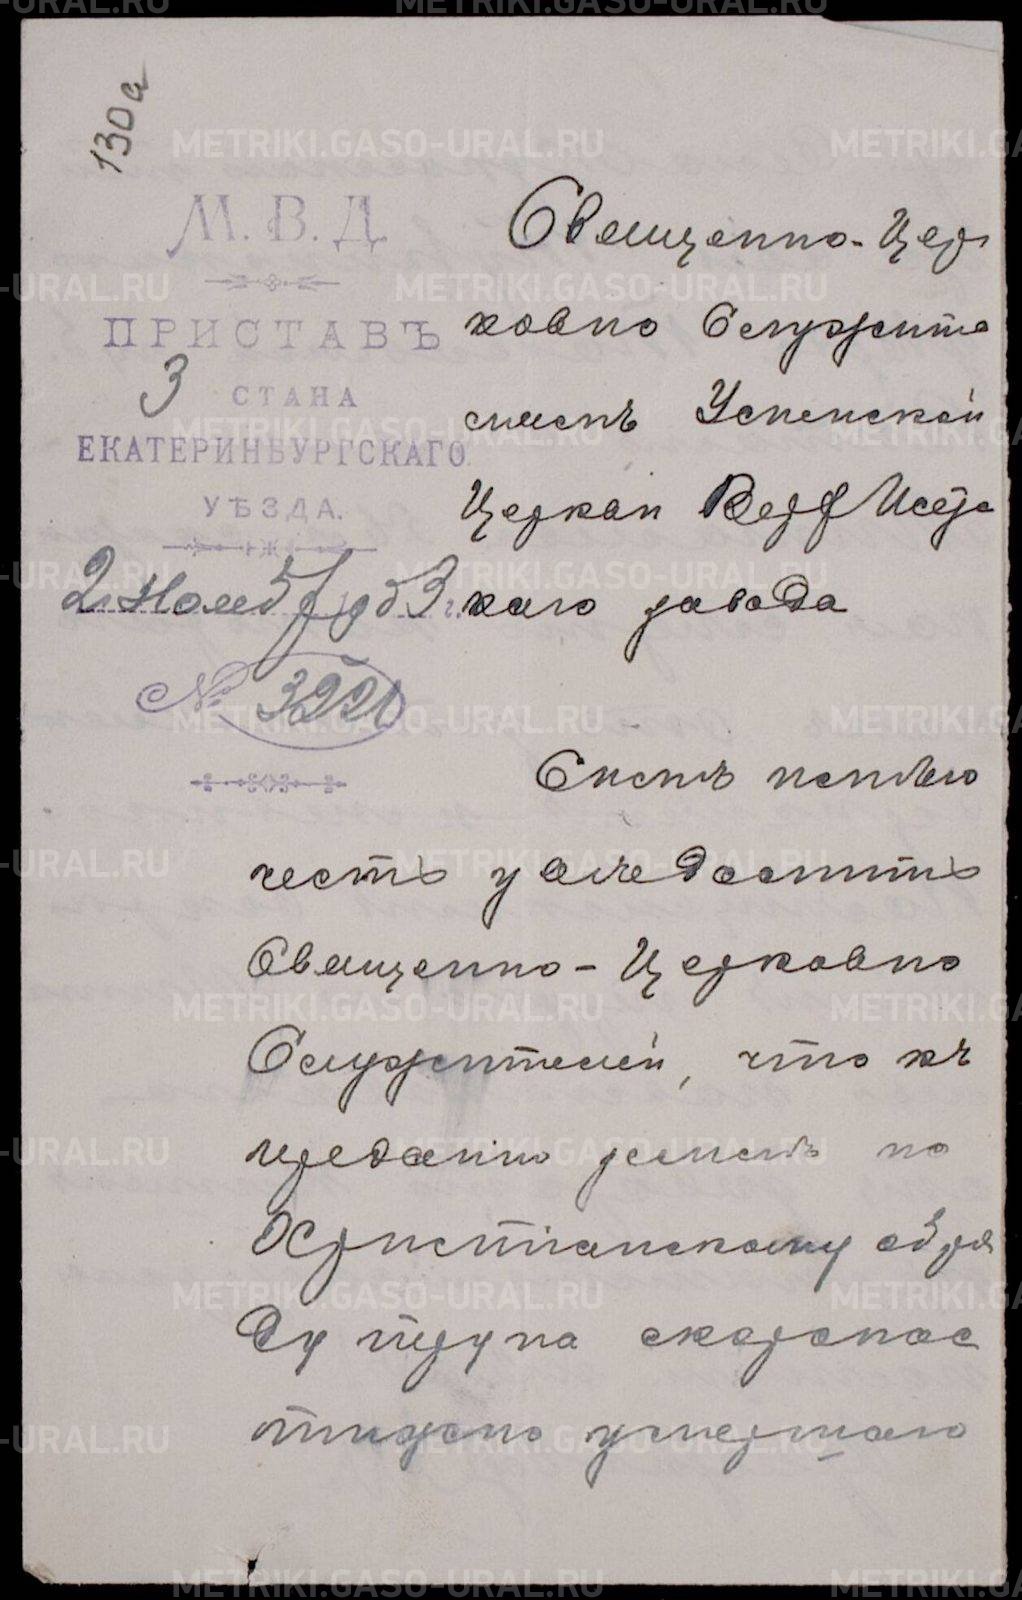 130а
М.В.Д.
ПРИСТАВЪ
3 СТАНА
ЕКАТЕРИНБУРГСКАГО
УѢЗДА.
2 Ноября 1903 г.
№ 3220
Священно-Цер
ковно Служите
лямъ Успенской
Церкви Верх Исетс
каго завода
Симъ имѣю
честь увѣдомить
Священно-Церковно
Служителей, что къ
преданію землѣ по
Христіанскому обря
ду трупа скоропос
тижно умершаго
METRIKI.GASO-URAL.RU